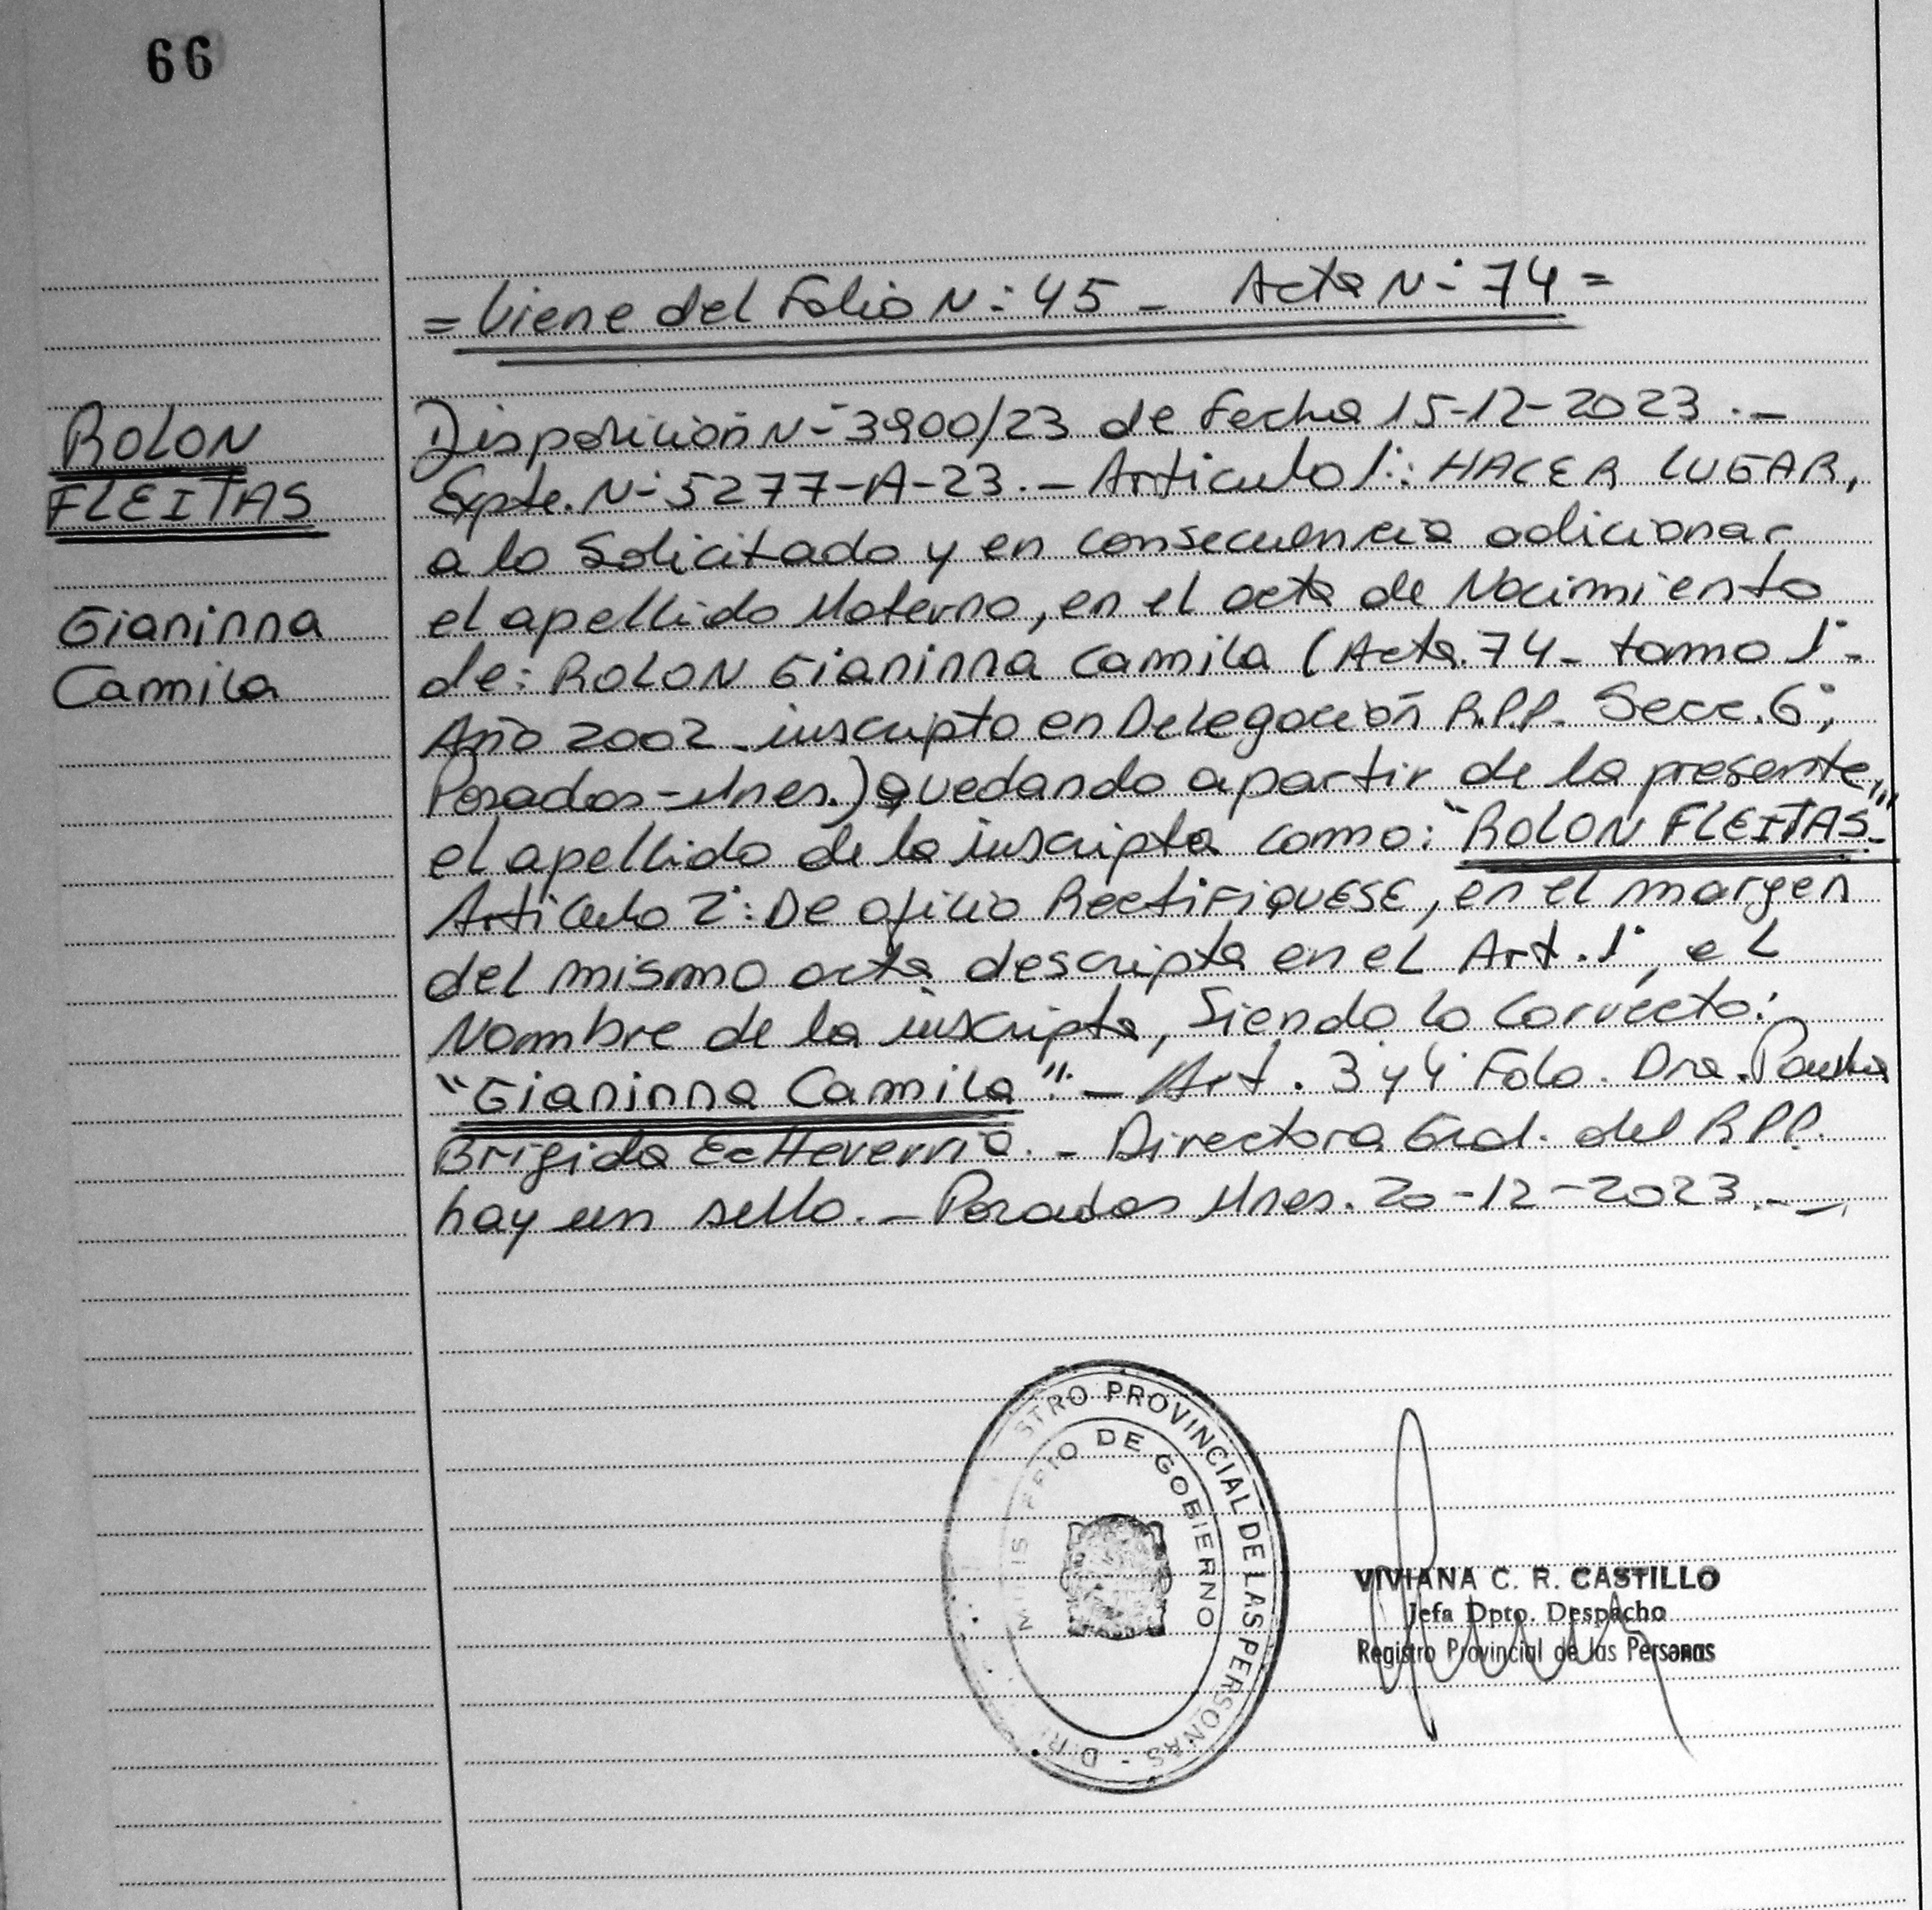 66
= Viene del Folio N°: 45 - Acta N° 74 =
ROLON
FLEITAS
Gianinna
Camila
Disposición N° 3900/23 de Fecha 15-12-2023.-
Expte. N° 5277-A-23.- Articulo 1°: HACER LUGAR,
a lo Solicitado y en consecuencia adicionar
el apellido Materno, en el acta de Nacimiento
de: ROLON Gianinna Camila (Acta.74- tomo 1°-
Año 2002 - inscripto en Delegación R.P.P. Secc.6°,
Posadas-Mnes.) quedando a partir de la presente,
el apellido de la inscripta como: "ROLON FLEITAS".-
Articulo 2°: De oficio RectiFIQUESE, en el margen
del mismo acta descripta en el Art. 1°, el
Nombre de la inscripta, Siendo lo Correcto:
"Gianinna Camila".- Art. 3 y 4° Fdo. Dra.
Brigida EcHeverria.- Directora Gral. del R.P.P.
hay un sello.- Posadas Mnes. 20-12-2023.-
STRO PROVINCIAL DE LAS PERSONAS - DIR
MINISTERIO DE GOBIERNO
VIVIANA C. R. CASTILLO
Jefa Dpto. Despacho
Registro Provincial de las Personas